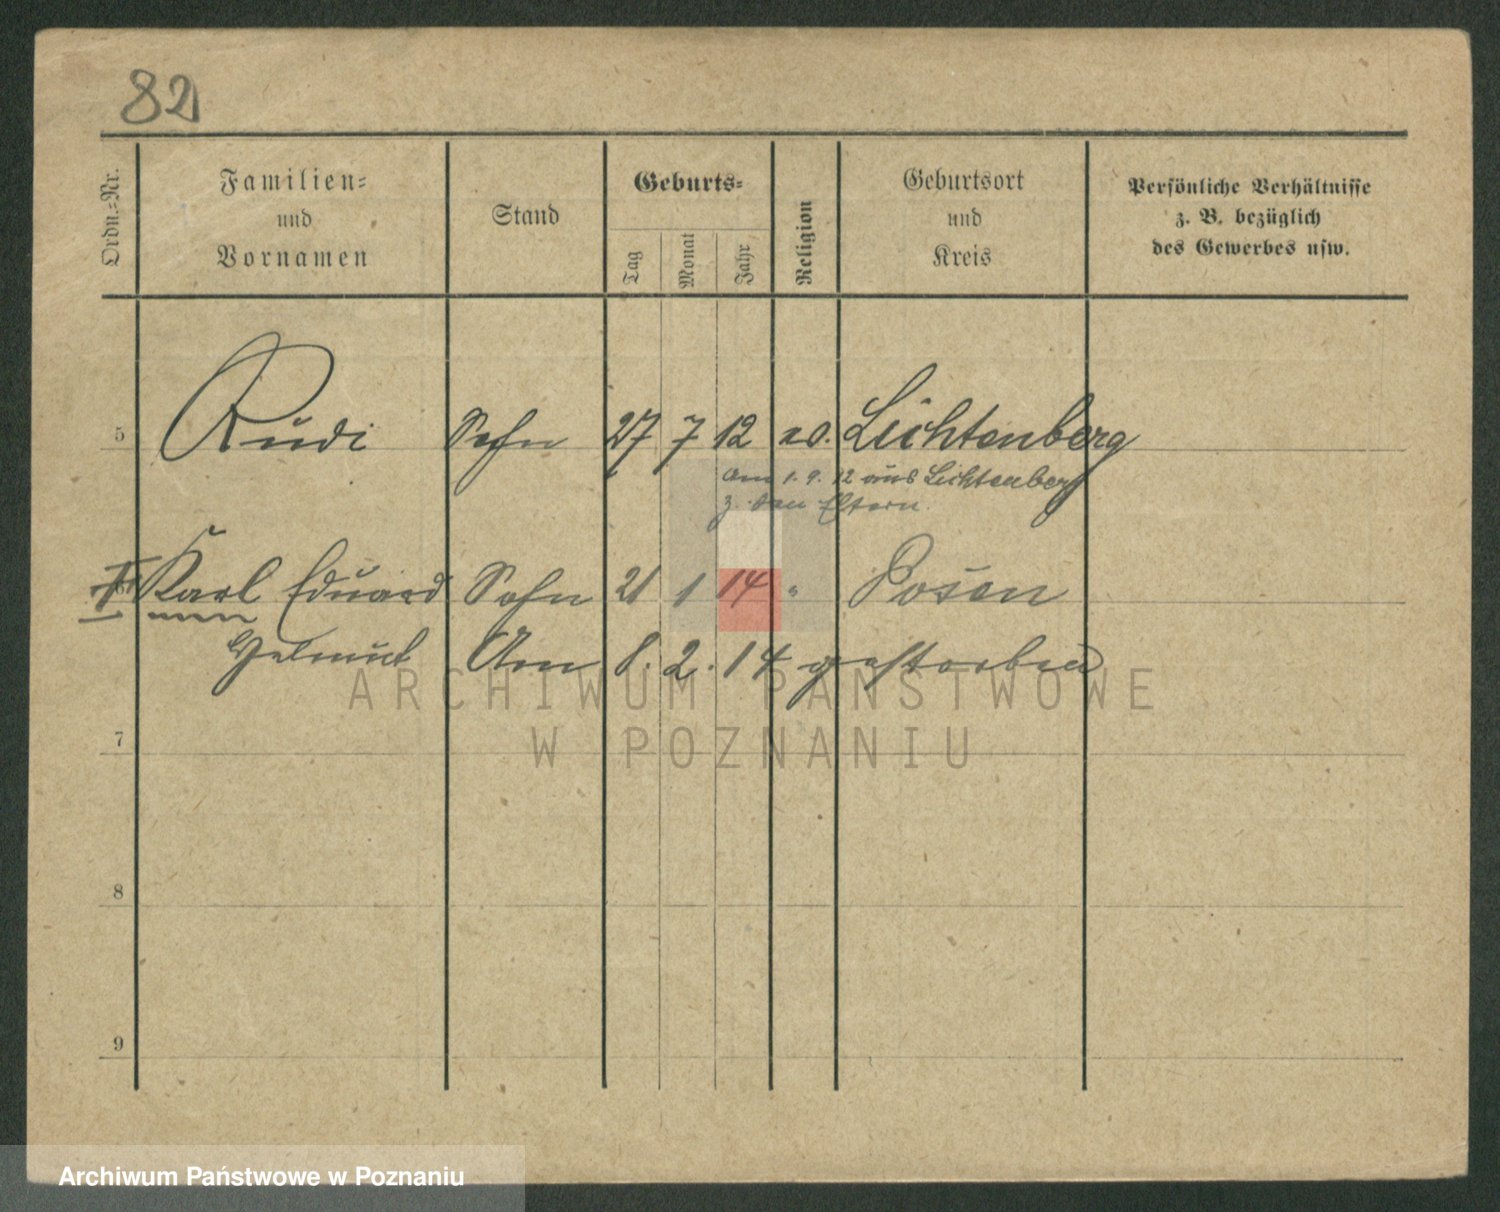 82
Ordn.-Nr.
Familien-
und
Vornamen
Stand
Geburts-
Tag
Monat
Jahr
Religion
Geburtsort
und
Kreis
Persönliche Verhältnisse
z. B. bezüglich
des Gewerbes usw.
5 Rudi Sohn 27 7 12 ev. Lichtenberg
am 1. 9. 12 aus Lichtenberg
z. den Eltern.
Karl Eduard Sohn 21 1 14 " Posen
Helmut Am 8. 2. 14 gestorben
ARCHIWUM PAŃSTWOWE
W POZNANIU
7
8
9
Archiwum Państwowe w Poznaniu